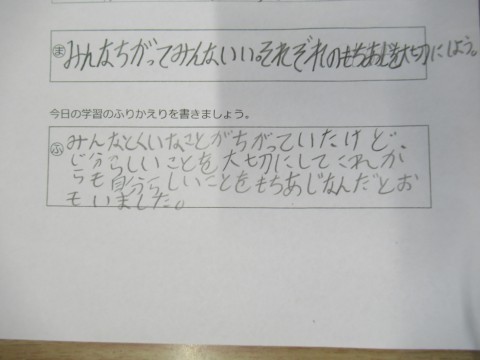 ま みんなちがってみんないい。それぞれのもちあじを大切にしよう。
今日の学習のふりかえりを書きましょう。
ふ みんなとくいなことがちがっていたけど、
じ分らしいことを大切にしてこれか
らも自分らしいことをもちあじなんだとお
もいました。